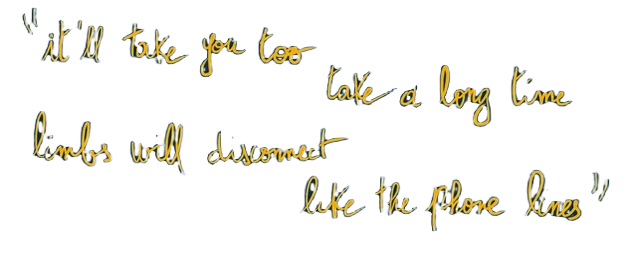 "it'll take you too
take a long time
limbs will disconnect
like the phone lines"